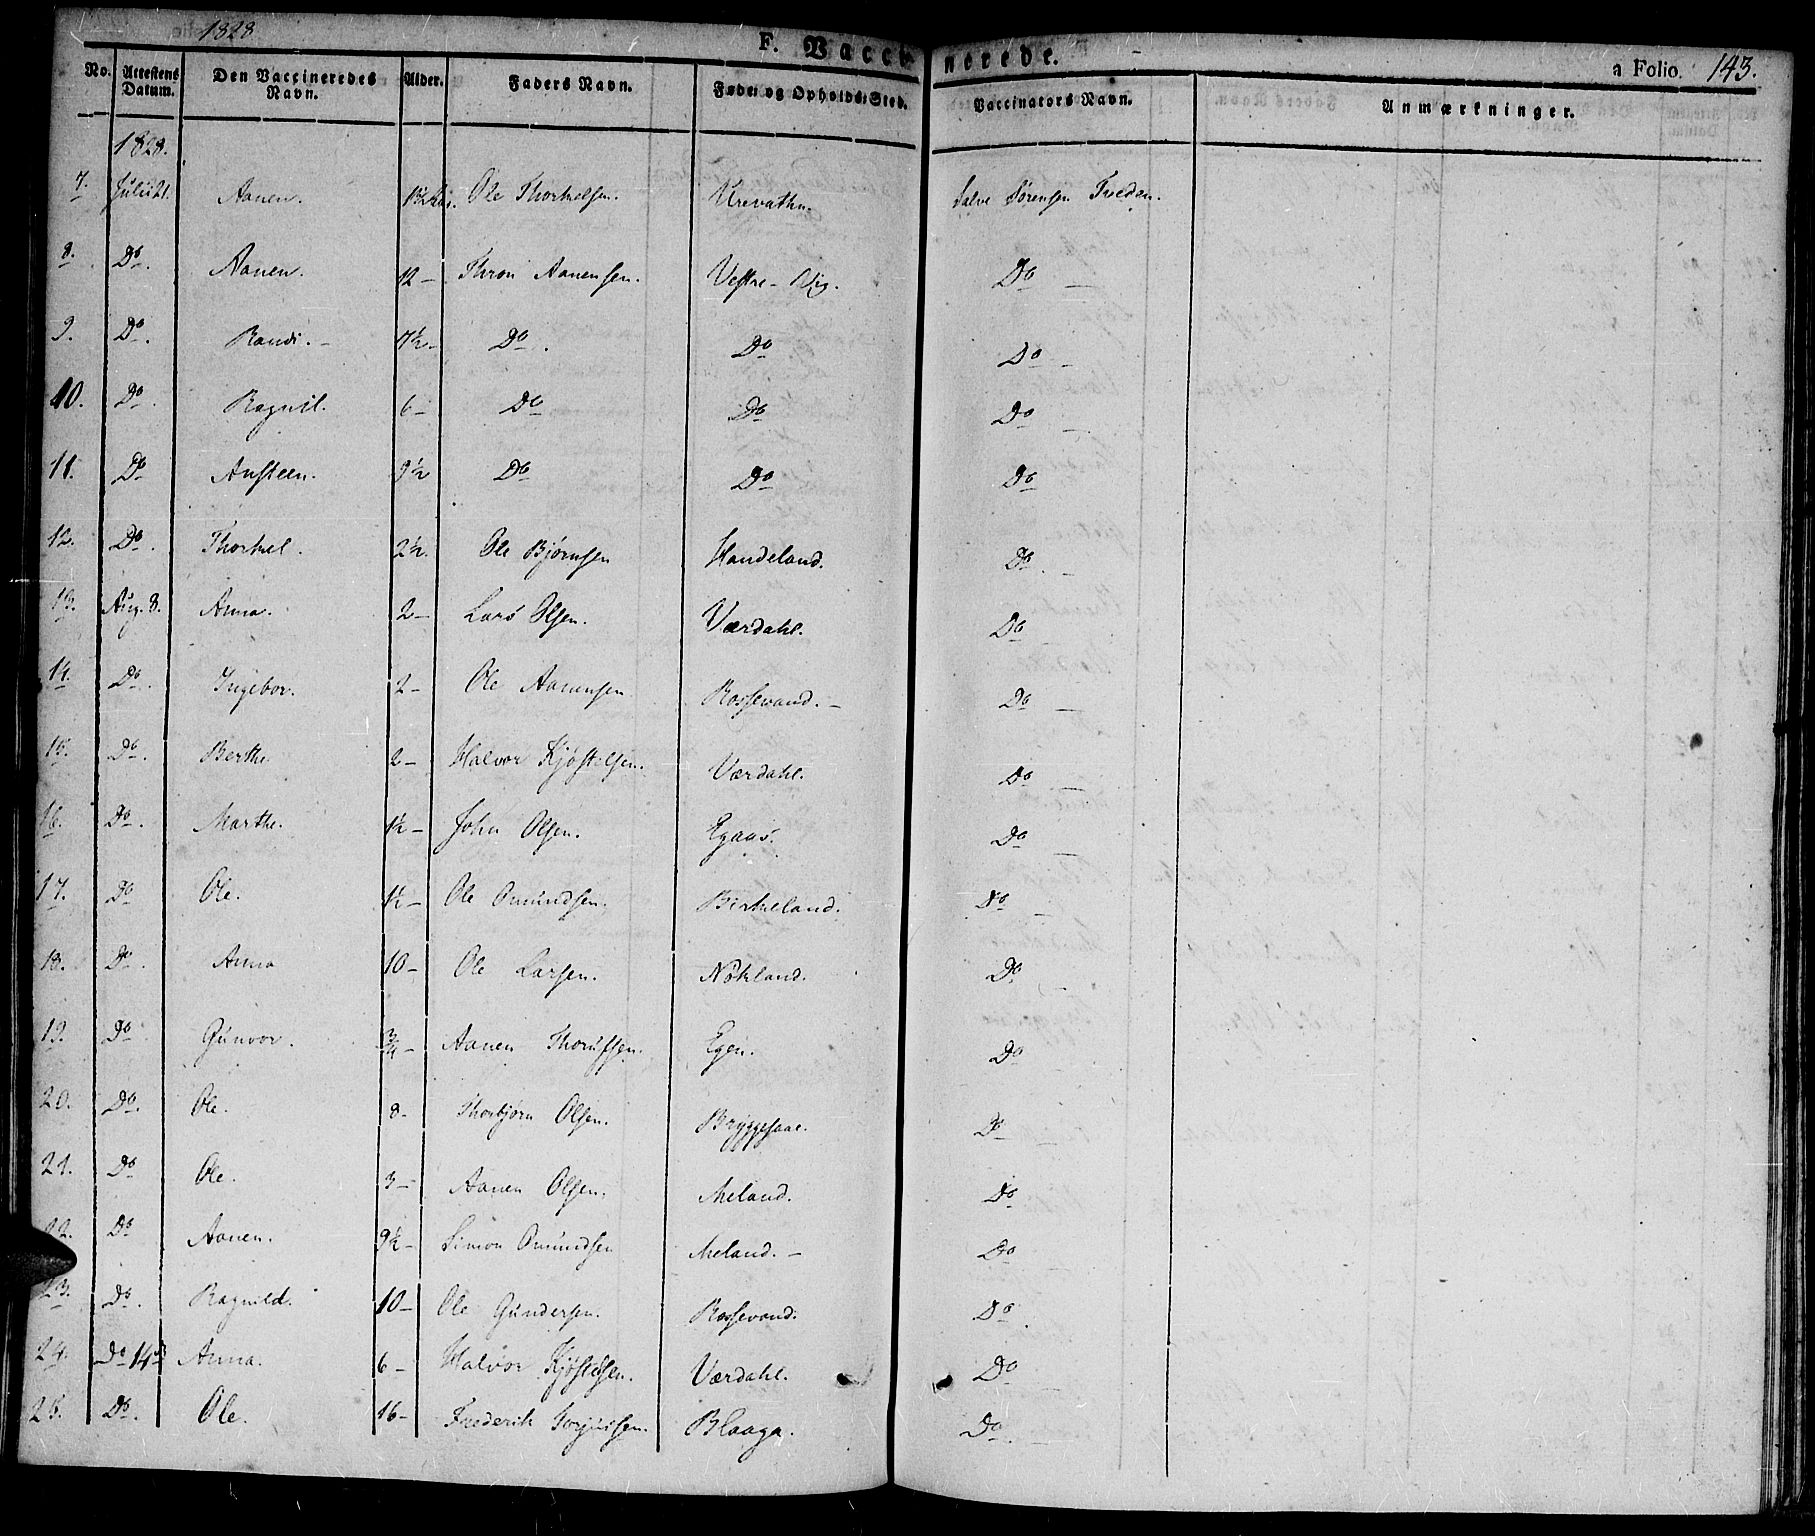 1828
F. Vaccinerede.
a Folio 143.
No. Attestens Datum. Den Vaccineredes Navn. Alder. Faders Navn. Føde- og Opholds-Sted. Vaccinators Navn. Anmærkninger.
1828.
7. Julii 21. Aanen. 1½ Ole Thorkelsen. Urevathn. Salve Sørensen Tveden.
8. Do. Aanen. 12 – Thron Aanensen. Vestre – Do –
9. Do. Randi. – 7½ – Do. Do Do –
10. Do. Ragnil. 6 – Do Do Do –
11. Do Austeen. 9½ Do Do Do
12. Do. Thorkel. 2½. Ole Bjørnsen Haudeland. Do. –
13. Aug. 8. Anna. 2 – Lars Olsen. Værdahl. Do –
14. Do. Ingebor. 2 – Ole Aanensen Rossevand. – Do –
15. Do. Berthe 2 – Halvor Kjøstelsen. Værdahl. Do –
16. Do. Marthe. 1½ – John Olsen. Egaas. Do –
17. Do Ole. 1½ – Ole Omundsen. Birkeland. Do –
18. Do. Anna 10 – Ole Larsen. Nökland. Do –
19. Do. Gunvor. ¾ – Aanen Thorufsen. Egen. Do
20. Do. Ole. 8 – Thorbjørn Olsen. Bryggesaae. Do –
21. Do Ole. 3 – Aanen Olsen. Meland. Do
22. Do Aanen. 9½ – Simon Omundsen Meland. – Do
23. Do. Ragnild. 10 – Ole Gundersen. Rossevand. Do.
24. Do 14de Anna. 6 – Halvor Kjøstelsen. Værdahl. Do –
25. Do. Ole. 16 – Frederik Torjussen. Blaaga. Do. –